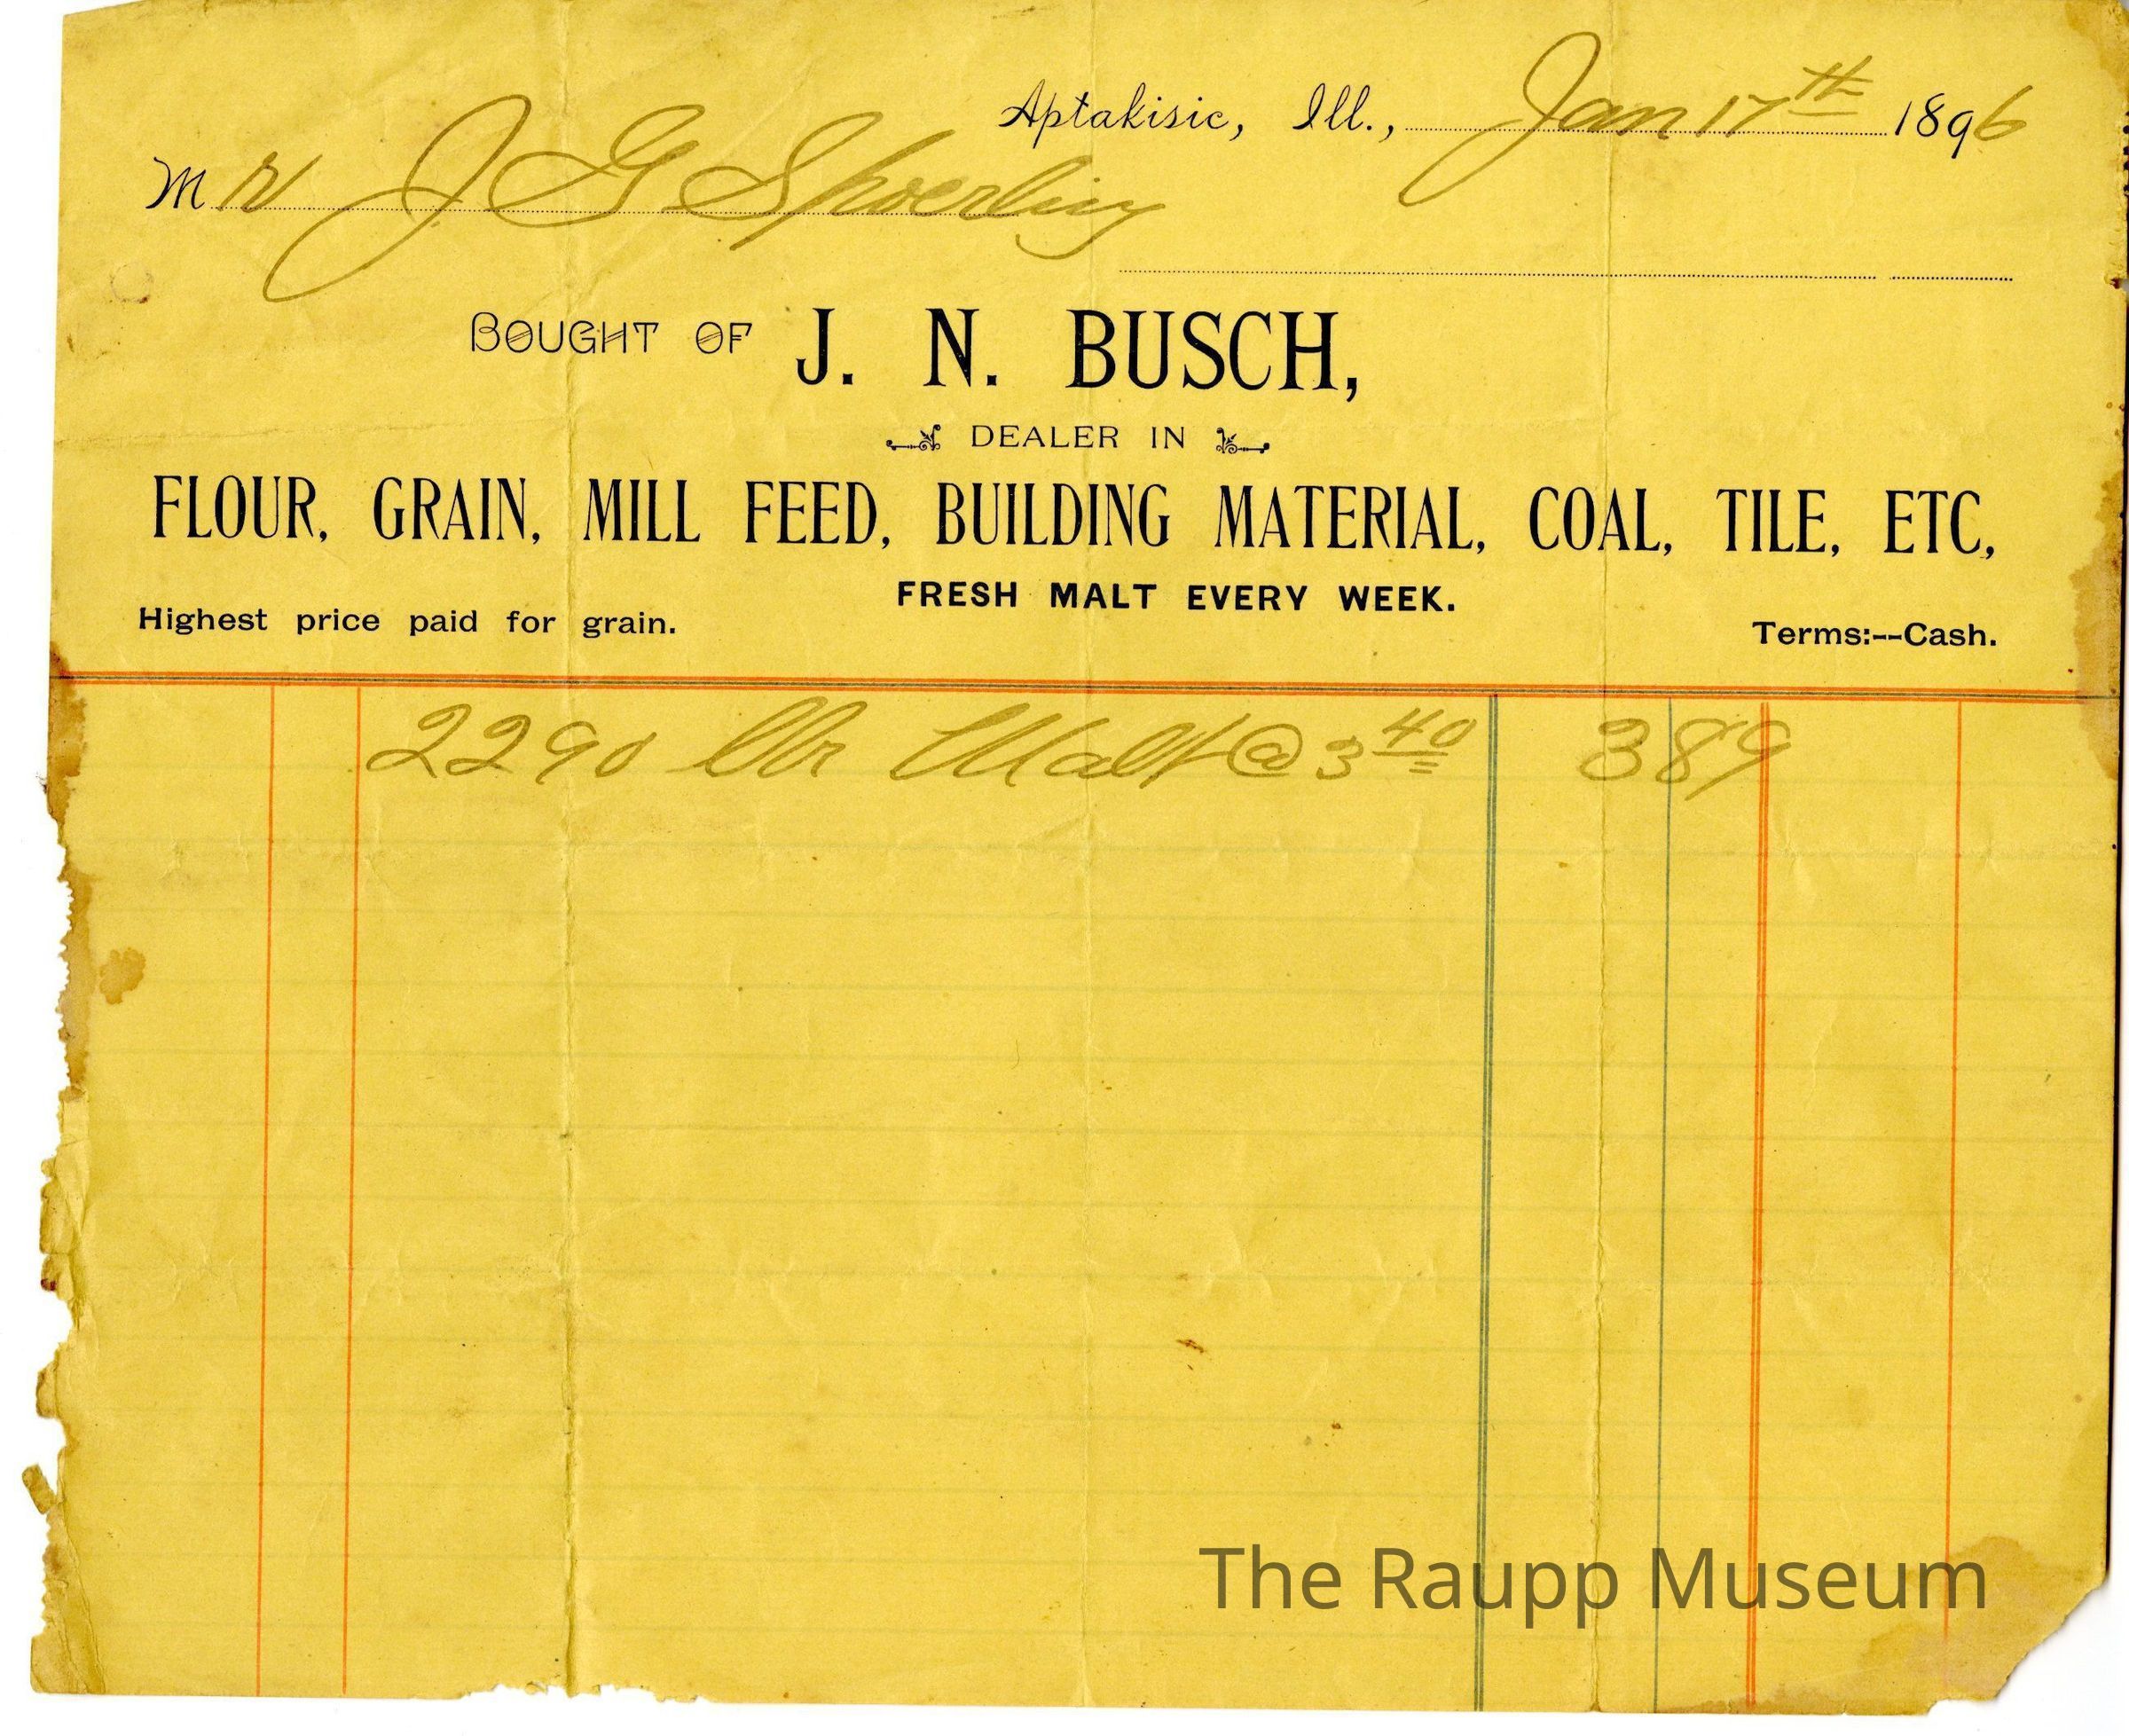 Aptakisic, Ill., Jan 17th 1896
Mr J G Sphoerling
BOUGHT OF J. N. BUSCH,
DEALER IN
FLOUR, GRAIN, MILL FEED, BUILDING MATERIAL, COAL, TILE, ETC,
FRESH MALT EVERY WEEK.
Highest price paid for grain. Terms:--Cash.
2290 lbs Malt @ 3 40 3 89
The Raupp Museum